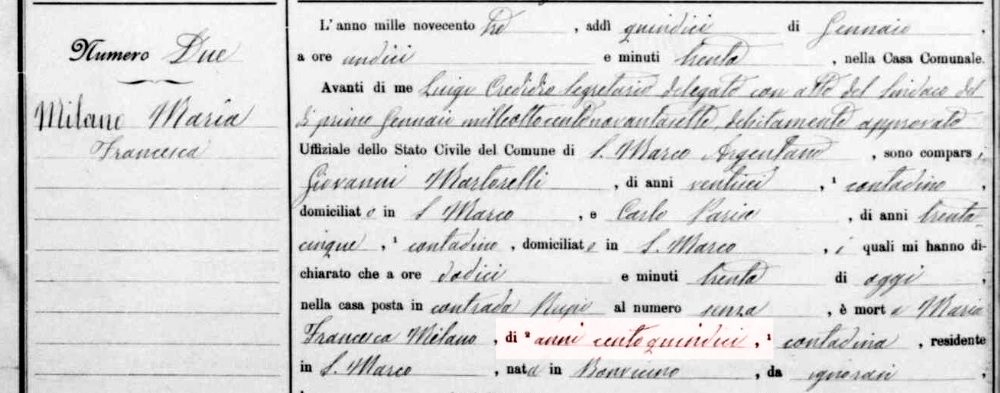 Numero Due
Milano Maria
Francesca
L'anno mille novecento tre, addì quindici di Gennaio,
a ore undici e minuti trenta, nella Casa Comunale.
Avanti di me Luigi Credidio Segretario delegato con atto del Sindaco del
primo Gennaio milleottocentonovantasette debitamente approvato
Uffiziale dello Stato Civile del Comune di S. Marco Argentano, sono compars i
Giovanni Martorelli, di anni ventisei, ¹ contadino,
domiciliato in S Marco, e Carlo Paria, di anni trenta
cinque, ¹ contadino, domiciliato in S. Marco, i quali mi hanno di-
chiarato che a ore dodici e minuti trenta di oggi
nella casa posta in contrada Rupe al numero senza, è morta Maria
Francesca Milano, di ² anni centoquindici, ¹ contadina, residente
in S. Marco, nata in Bonvicino, da ignorasi,